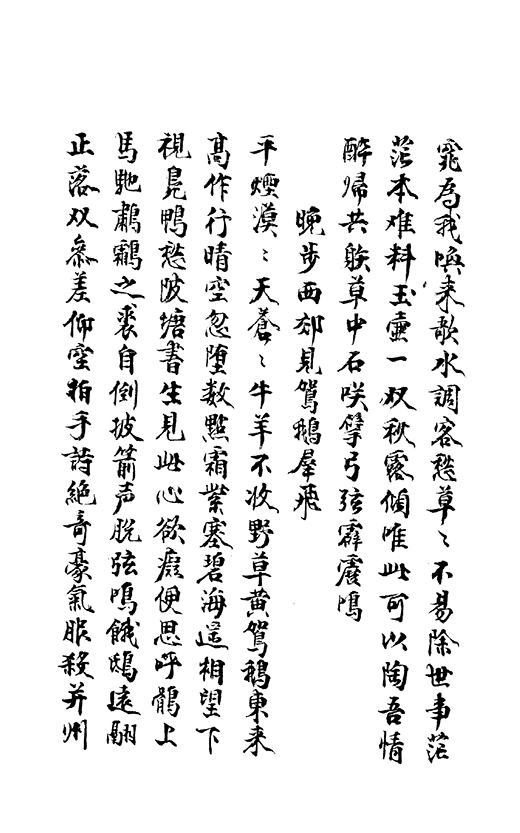 寵為我喚來歌水調客愁草〻不易除世事茫
茫本難料玉壺一双秋露傾唯此可以陶吾情
醉歸共躲草中石咲擘弓弦霹靂鳴
晚步西郊見駕鵝羣飛
平煙漠〻天蒼〻牛羊不收野草黃駕鵝東來
高作行晴空忽墮數點霜紫塞碧海遥相望下
視鳧鴨愁陂塘書生見此心欲癡便思呼鶻上
馬馳鷫鸘之裘自倒披箭声脱弦鳴餓鴟遠翮
正落双參差仰空拍手詩絶奇豪氣壓殺并州